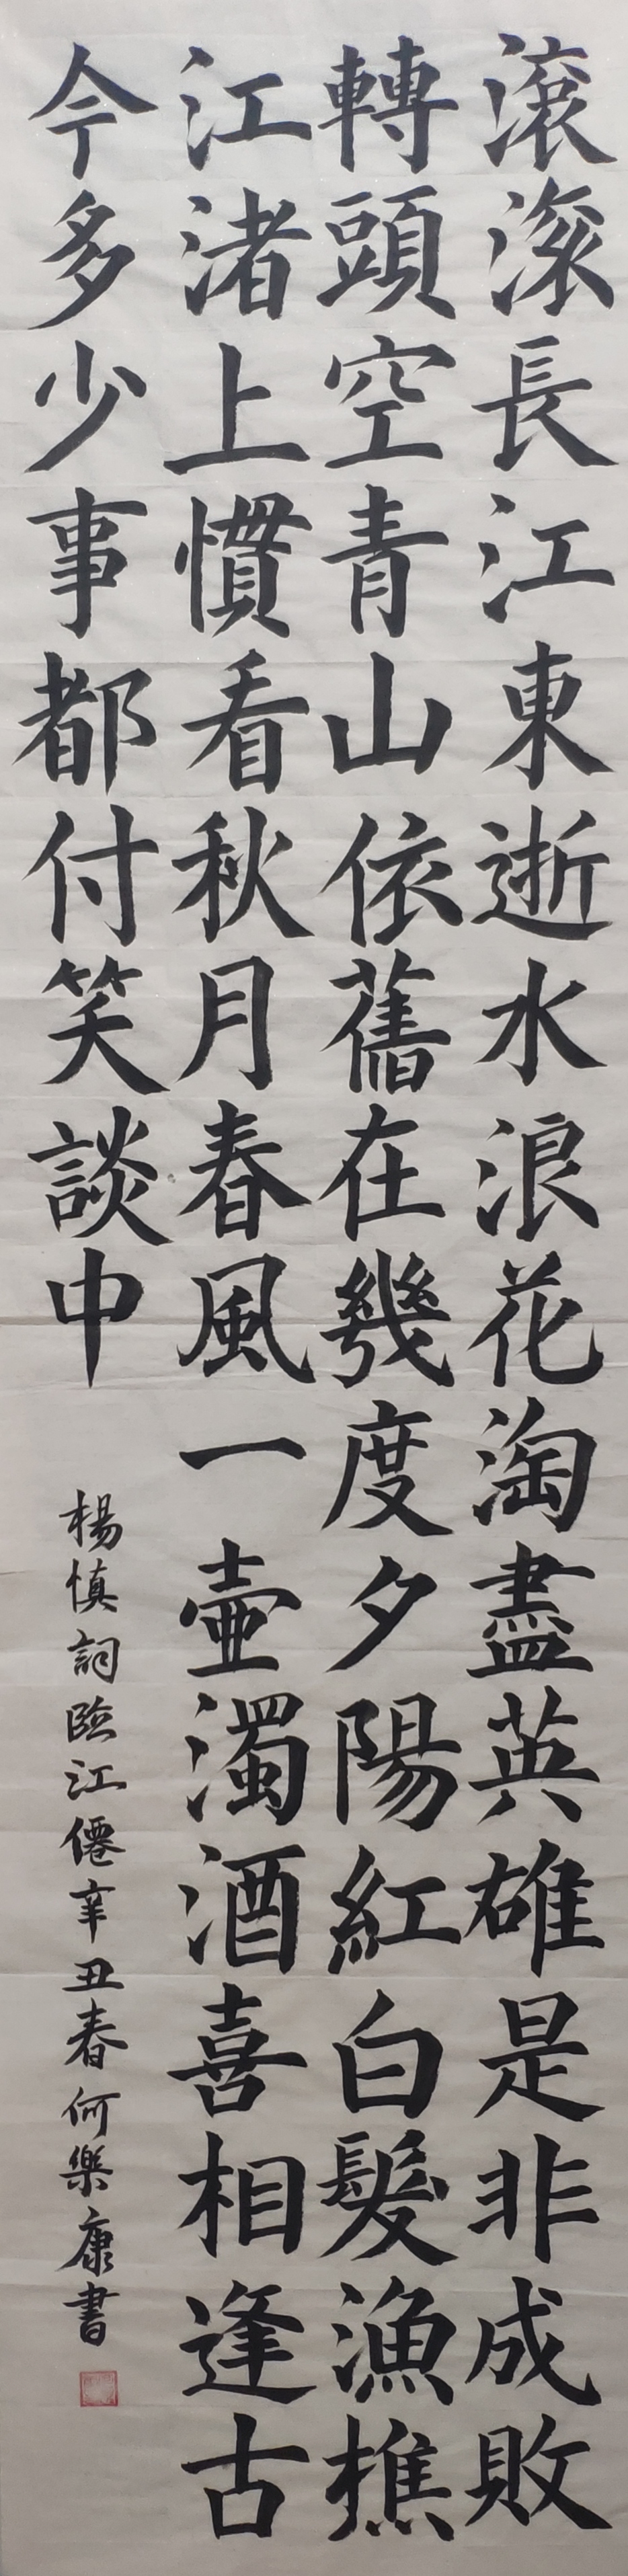 滾滾長江東逝水浪花淘盡英雄是非成敗
轉頭空青山依舊在幾度夕陽紅白髮漁樵
江渚上慣看秋月春風一壺濁酒喜相逢古
今多少事都付笑談中
楊慎詞臨江僊辛丑春何樂康書